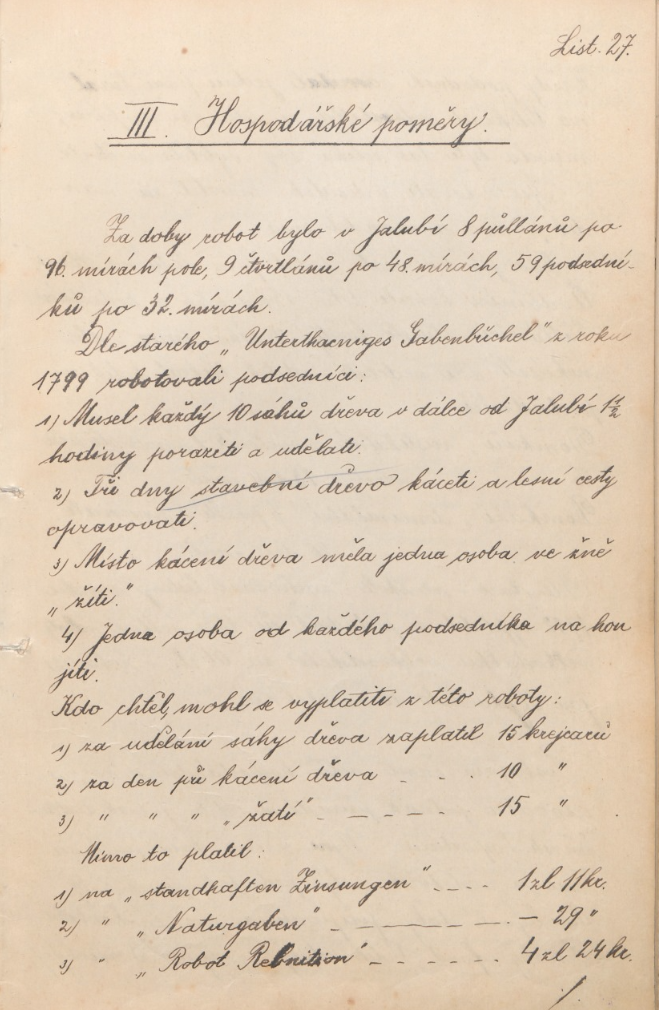 List. 27.
III. Hospodářské poměry.
Za doby robot bylo v Jalubí 8 půllánů po
96. mírách pole, 9 čtvrtlánů po 48. mírách, 59 podsední-
ků po 32. mírách.
Dle starého „Unterthaeniges Gabenbüchel" z roku
1799 robotovali podsedníci:
1) Musel každý 10 sáhů dřeva v dálce od Jalubí 1½
hodiny poraziti a udělati.
2) Tři dny stavební dřevo káceti a lesní cesty
opravovati.
3) Místo kácení dřeva měla jedna osoba ve žně
„žíti."
4) Jedna osoba od každého podsedníka na hon
jíti.
Kdo chtěl, mohl se vyplatiti z této roboty:
1) za udělání sáhy dřeva zaplatil 15 krejcarů
2) za den při kácení dřeva - - - 10 "
3) " " " „žatí" - - - - - 15 "
Mimo to platil:
1) na „standhaften Zinsungen" - - - - 1 zl 11 kr.
2) " „Naturgaben" - - - - - 29 "
3) " „Robot Rebnition" - - - - - 4 zl 24 kr.
./.